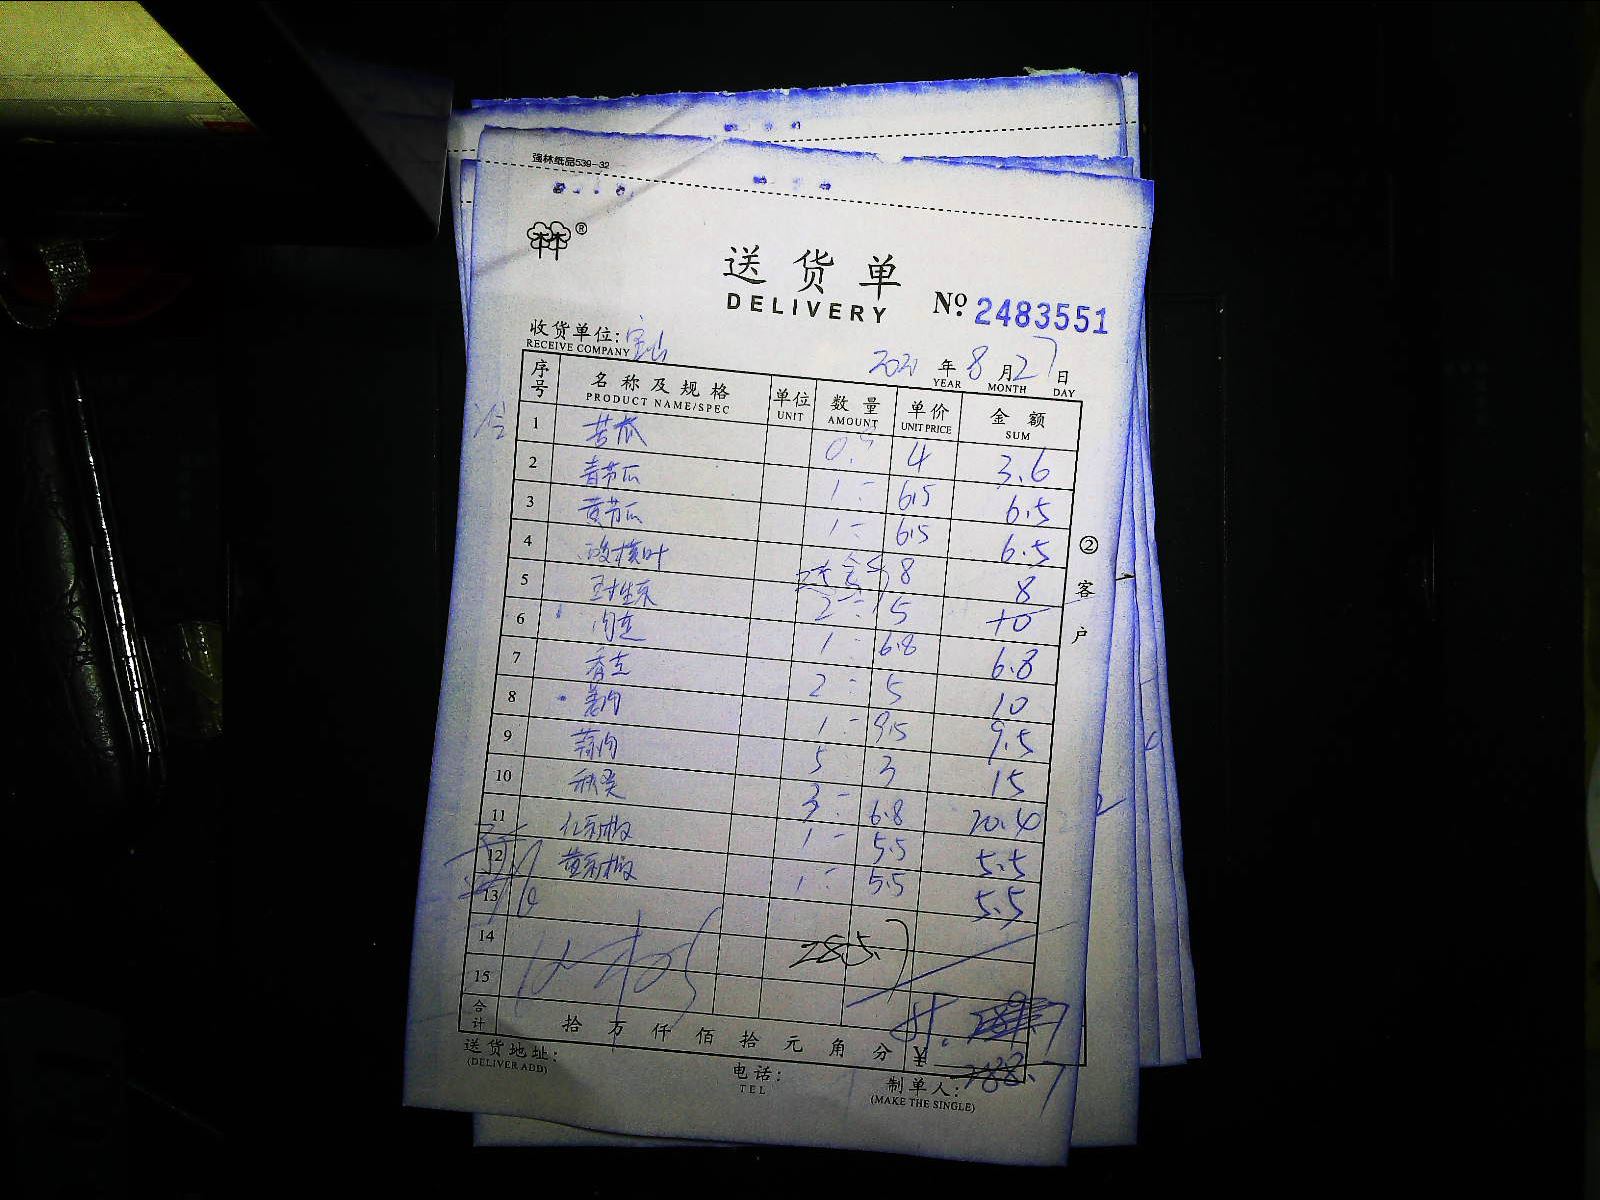 強林纸品539-32
林 ®
送货单
DELIVERY
No. 2483551
收货单位: 宝山
RECEIVE COMPANY
2021 年 8 月 27 日
YEAR MONTH DAY
序号 名称及规格 单位 数量 单价 金额
PRODUCT NAME/SPEC UNIT AMOUNT UNIT PRICE SUM
1 苦瓜 0.9 4 3.6
2 青节瓜 1 6.5 6.5
3 黄节瓜 1 6.5 6.5
4 8 8
5 2 5 10
6 1 6.8 6.8
7 2 5 10
8 姜肉 1 9.5 9.5
9 蒜肉 5 3 15
10 秋葵 3 6.8 20.4
11 1 5.5 5.5
12 1 5.5 5.5
13
14 285.7
15
合计 拾 万 仟 佰 拾 元 角 分 ¥
288.7
送货地址:
(DELIVER ADD)
电话:
TEL
制单人:
(MAKE THE SINGLE)
② 客户